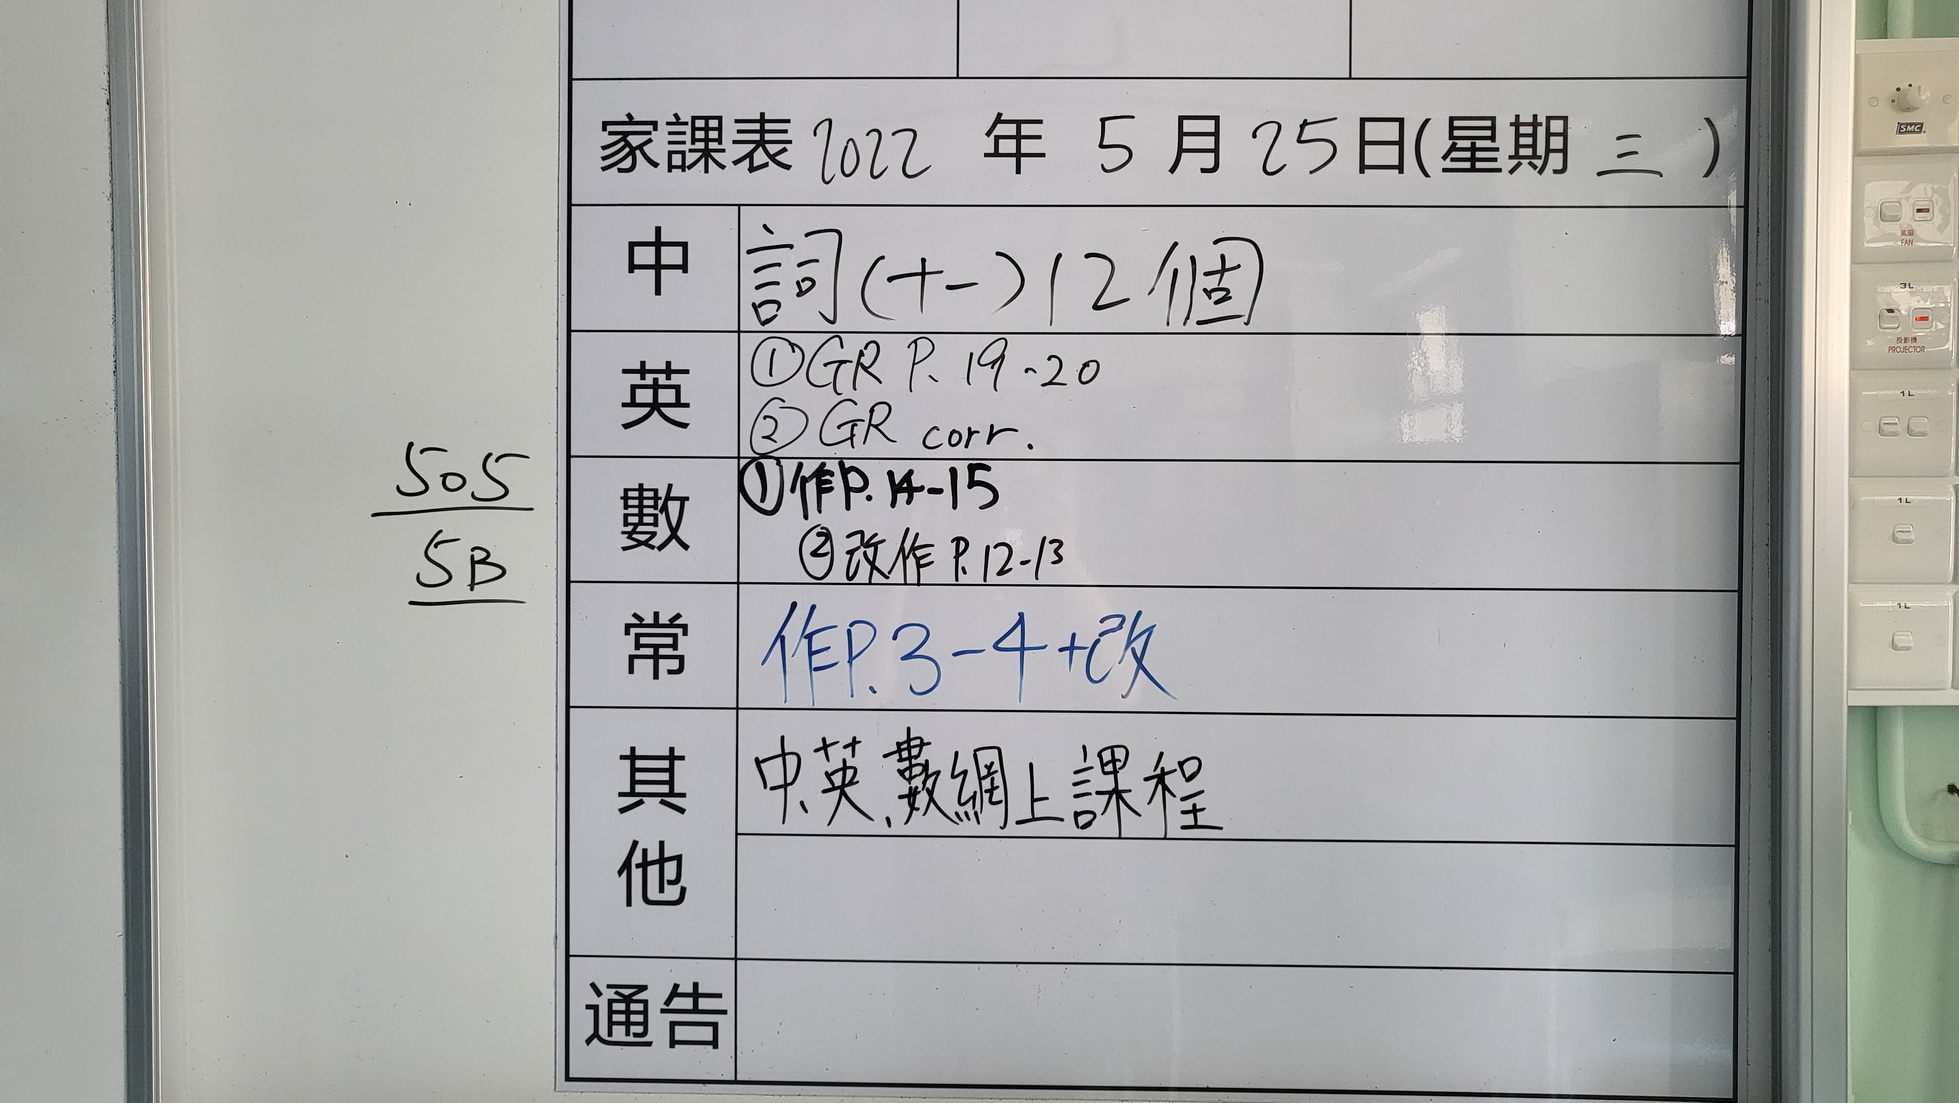 家課表 2022 年 5 月 25 日(星期 三 )
中 詞(十一)12個
英 ①GR P. 19-20
②GR corr.
數 ①作P.14-15
②改作P.12-13
常 作P.3-4+改
其他 中、英、數網上課程
通告
505
5B
SMC
風扇
FAN
3L
投影機
PROJECTOR
1L
1L
1L